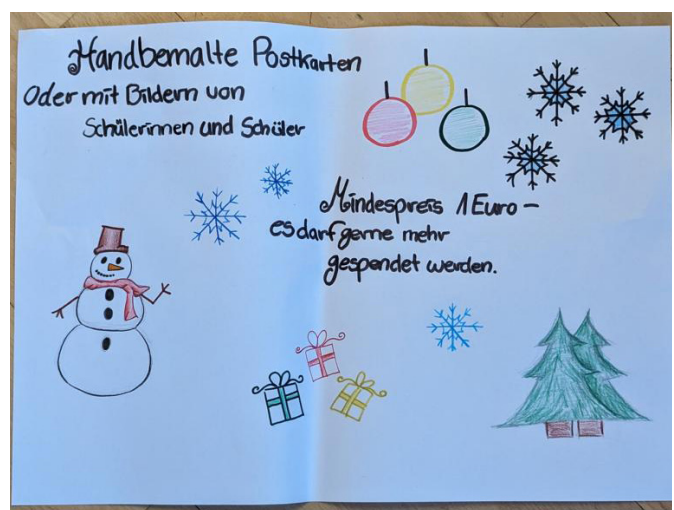 Handbemalte Postkarten
Oder mit Bildern von
Schülerinnen und Schüler
Mindespreis 1 Euro –
es darf gerne mehr
gespendet werden.